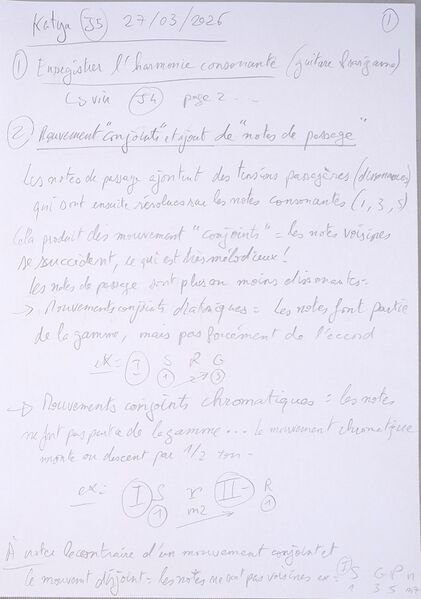 Katya J5 27/03/2026 1
1 Enregistrer l'harmonie consonante (guitare
↳ voir J4 page 2 ..
2 Mouvement "conjoints" et ajout de "notes de passage"
Les notes de passage ajoutent des tensions passagères (dissonances)
qui sont ensuite résolues sur les notes consonantes (1, 3, 5)
Cela produit des mouvement "conjoints" = les notes voisines
se succèdent, ce qui est très mélodieux !
Les notes de passage sont plus ou moins dissonantes.
→ Mouvements conjoints diatoniques = les notes font partie
de la gamme, mais pas forcément de l'accord
ex = I S R G
1 → 3
→ Mouvements conjoints chromatiques = les notes
ne font pas partie de la gamme ... le mouvement chromatique
monte ou descent par 1/2 ton.
ex = I S r II- R
1 m2 1
À noter le contraire d'un mouvement conjoint est
le mouvant disjoint = les notes ne sont pas voisines ex = I S G P n
1 3 5 m7